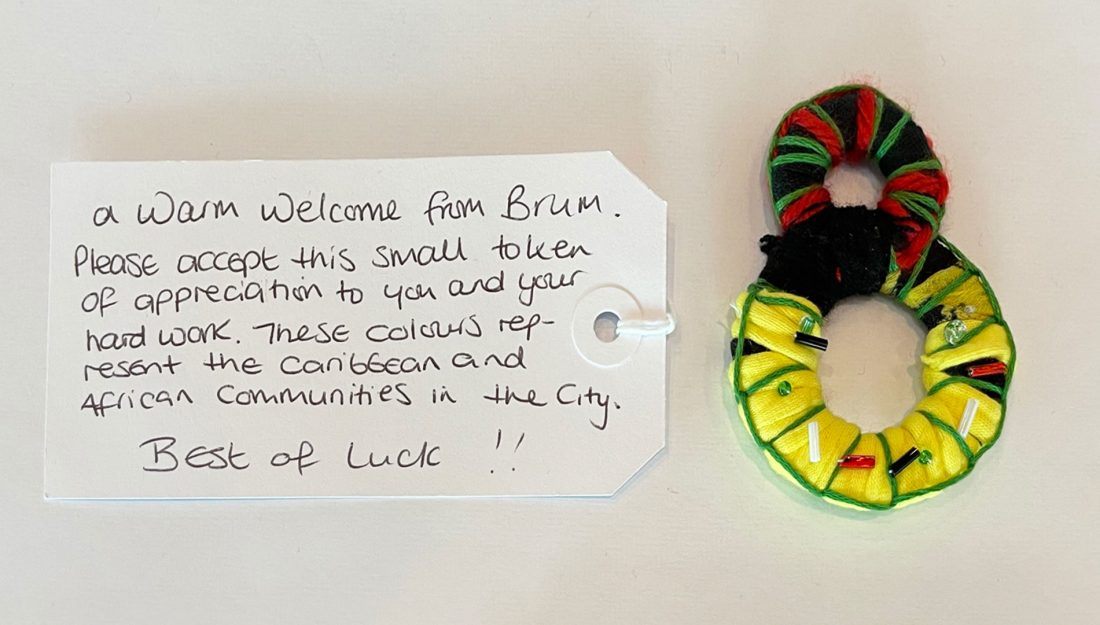 a Warm Welcome from Brum.
Please accept this small token
of appreciation to you and your
hard work. These colours rep-
resent the Caribbean and
African Communities in the City.
Best of Luck !!